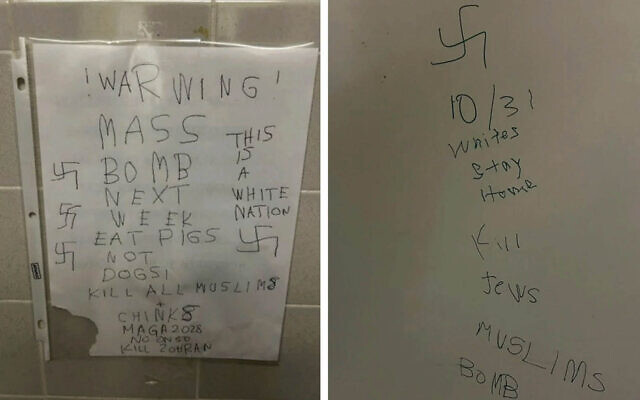 !WARNING!
MASS
THIS
IS
BOMB
A
NEXT
WHITE
WEEK
NATION
EAT PIGS
NOT
DOGS!
KILL ALL MUSLIMS
+
CHINKS
MAGA 2028
KILL ZOHRAN
10/31
Whites
Stay
Home
Kill
Jews
MUSLIMS
BOMB